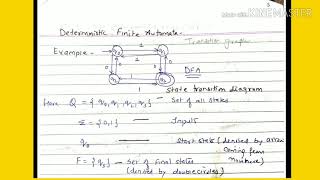 Made with
KINEMASTER
Deterministic Finite Automata -
Transition graph
Example -
q0 1 q1
1
0 0 0 0
1
q2 q3
1
DFA
State transition diagram
Here Q = {q0, q1, q2, q3} — Set of all states
Σ = {0,1} — Inputs
q0 — Start state (denoted by arrow
coming from
nowhere)
F = {q3} — Set of final states
(denoted by double circles)